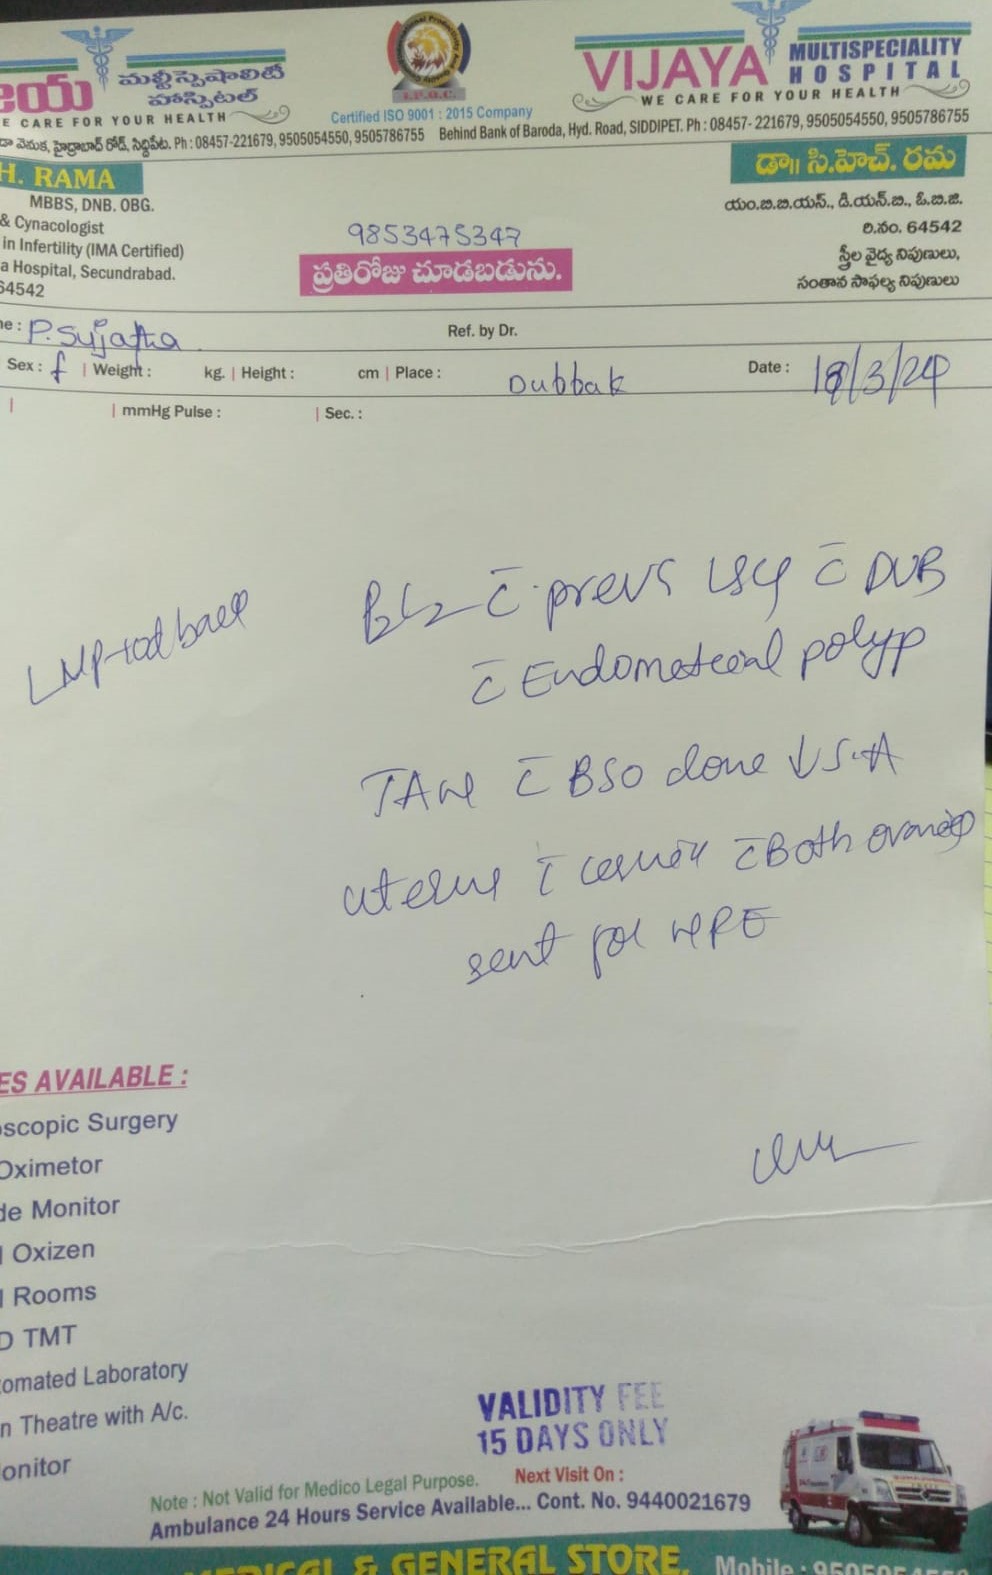 మల్టీస్పెషాలిటీ
హాస్పిటల్
E CARE FOR YOUR HEALTH
I.P.Q.C.
Certified ISO 9001 : 2015 Company
VIJAYA MULTISPECIALITY HOSPITAL
WE CARE FOR YOUR HEALTH
వెనుక, హైద్రాబాద్ రోడ్, సిద్దిపేట. Ph : 08457-221679, 9505054550, 9505786755 Behind Bank of Baroda, Hyd. Road, SIDDIPET. Ph : 08457- 221679, 9505054550, 9505786755
H. RAMA
MBBS, DNB. OBG.
& Cynacologist
in Infertility (IMA Certified)
a Hospital, Secundrabad.
64542
9853475347
ప్రతిరోజు చూడబడును.
డా॥ సి.హెచ్. రమ
యం.బి.బి.యస్., డి.యన్.బి., ఓ.బి.జి.
రి.నం. 64542
స్త్రీల వైద్య నిపుణులు,
సంతాన సాఫల్య నిపుణులు
me : P. Sujatha Ref. by Dr.
Sex : f | Weight : kg. | Height : cm | Place : Dubbak Date : 18/3/24
| | mmHg Pulse : | Sec. :
c̄ prevs c̄ DUB
LMP
c̄ Endometrial polyp
TAH c̄ BSO done ↓ S.A
uterus c̄ cervix c̄ Both ovaries
sent for HPE
ES AVAILABLE :
oscopic Surgery
Oximetor
de Monitor
l Oxizen
l Rooms
D TMT
tomated Laboratory
n Theatre with A/c.
onitor
VALIDITY FEE
15 DAYS ONLY
Note : Not Valid for Medico Legal Purpose. Next Visit On :
Ambulance 24 Hours Service Available... Cont. No. 9440021679
MEDICAL & GENERAL STORE, Mobile :